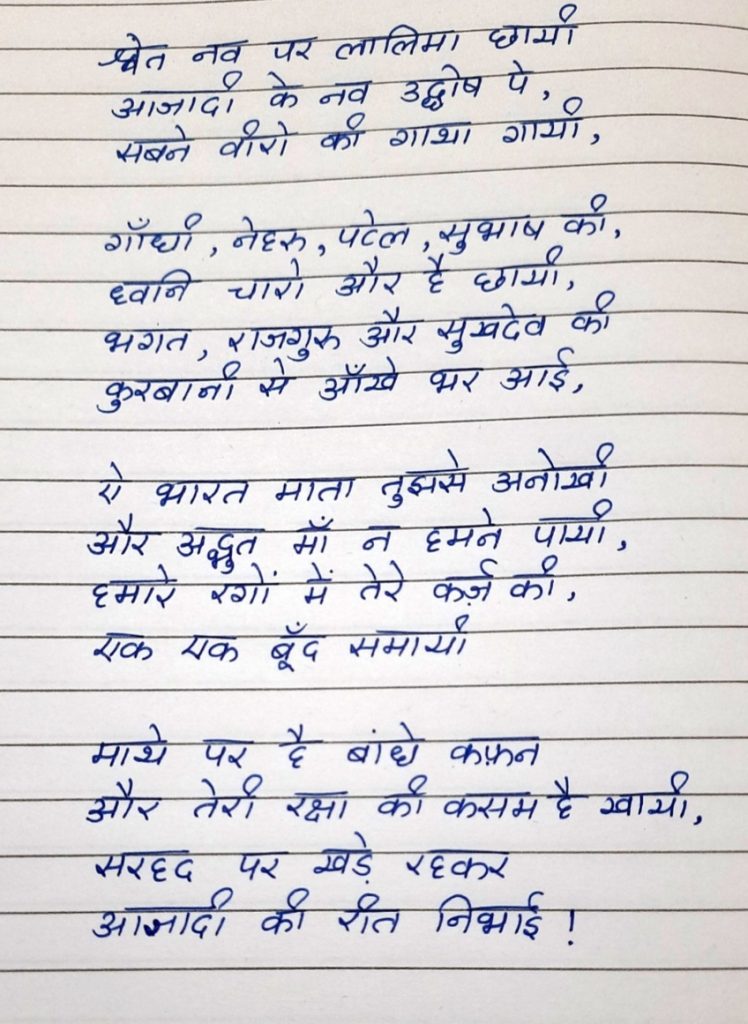 श्वेत नव पर लालिमा छायी
आजादी के नव उद्घोष पे,
सबने वीरो की गाथा गायी,
गाँधी, नेहरू, पटेल, सुभाष की,
ध्वनि चारो और है छायी,
भगत, राजगुरू और सुखदेव की
कुरबानी से आँखे भर आई,
ऐ भारत माता तुझसे अनोखी
और अद्भुत माँ न हमने पायी,
हमारे रगों में तेरे कर्ज़ की,
एक एक बूँद समायी
माथे पर है बांधे कफ़न
और तेरी रक्षा की कसम है खायी,
सरहद पर खड़े रहकर
आजादी की रीत निभाई !